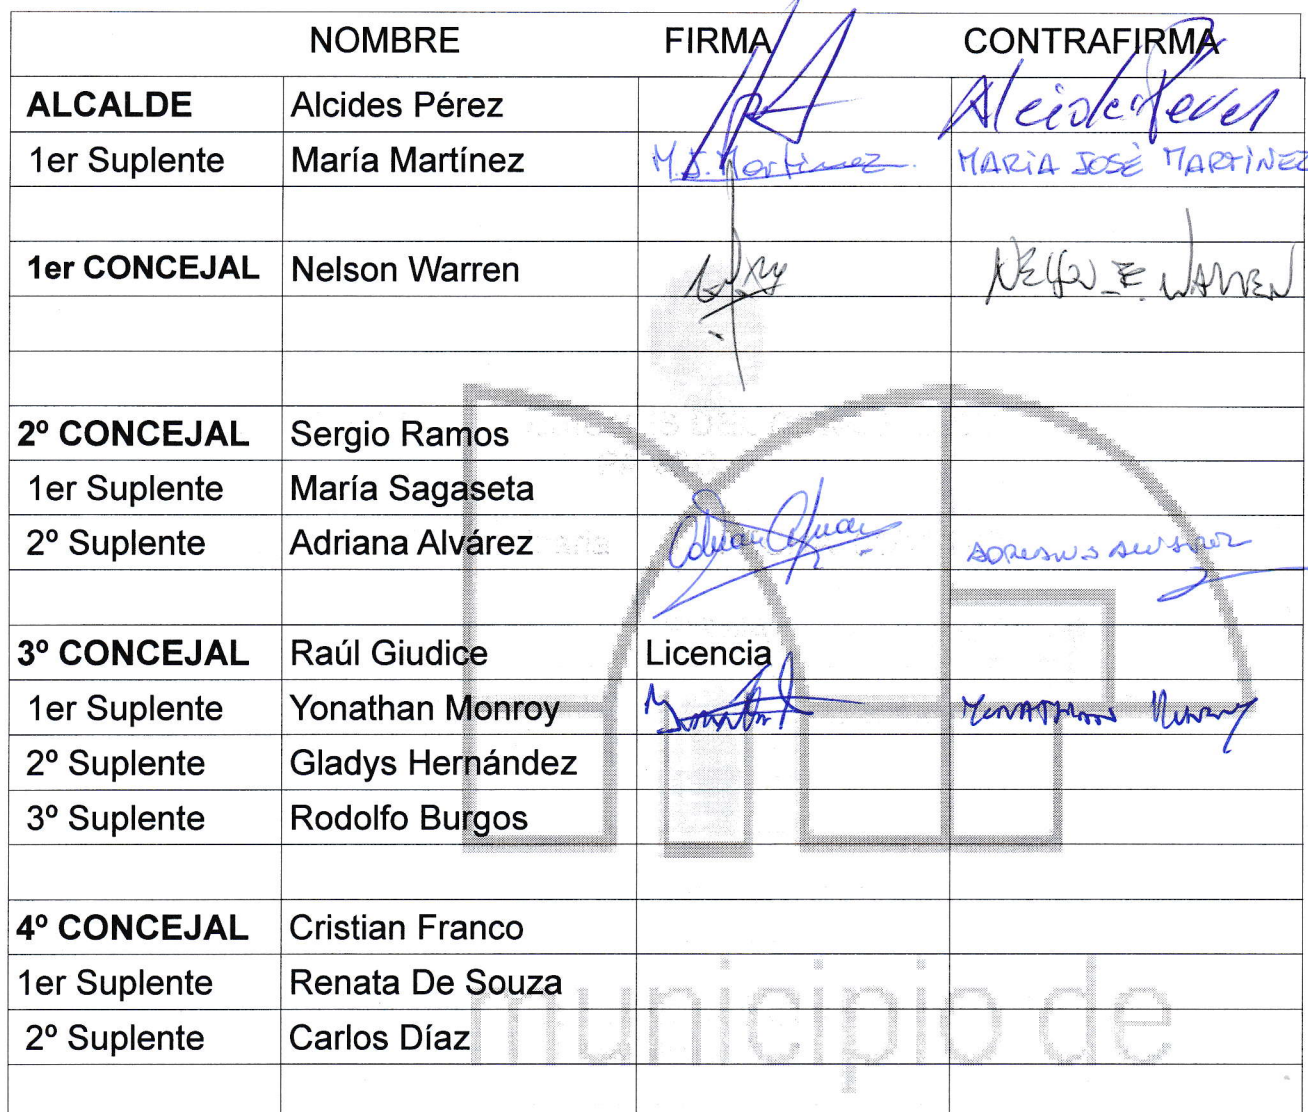 NOMBRE FIRMA CONTRAFIRMA
ALCALDE Alcides Pérez Alcides Perez
1er Suplente María Martínez M.J. Martinez MARÍA JOSÉ MARTÍNEZ
1er CONCEJAL Nelson Warren NELSON E. WARREN
2º CONCEJAL Sergio Ramos
1er Suplente María Sagaseta
2º Suplente Adriana Alvárez ADRIANA ALVAREZ
3º CONCEJAL Raúl Giudice Licencia
1er Suplente Yonathan Monroy YONATHAN MONROY
2º Suplente Gladys Hernández
3º Suplente Rodolfo Burgos
4º CONCEJAL Cristian Franco
1er Suplente Renata De Souza
2º Suplente Carlos Díaz
municipio de